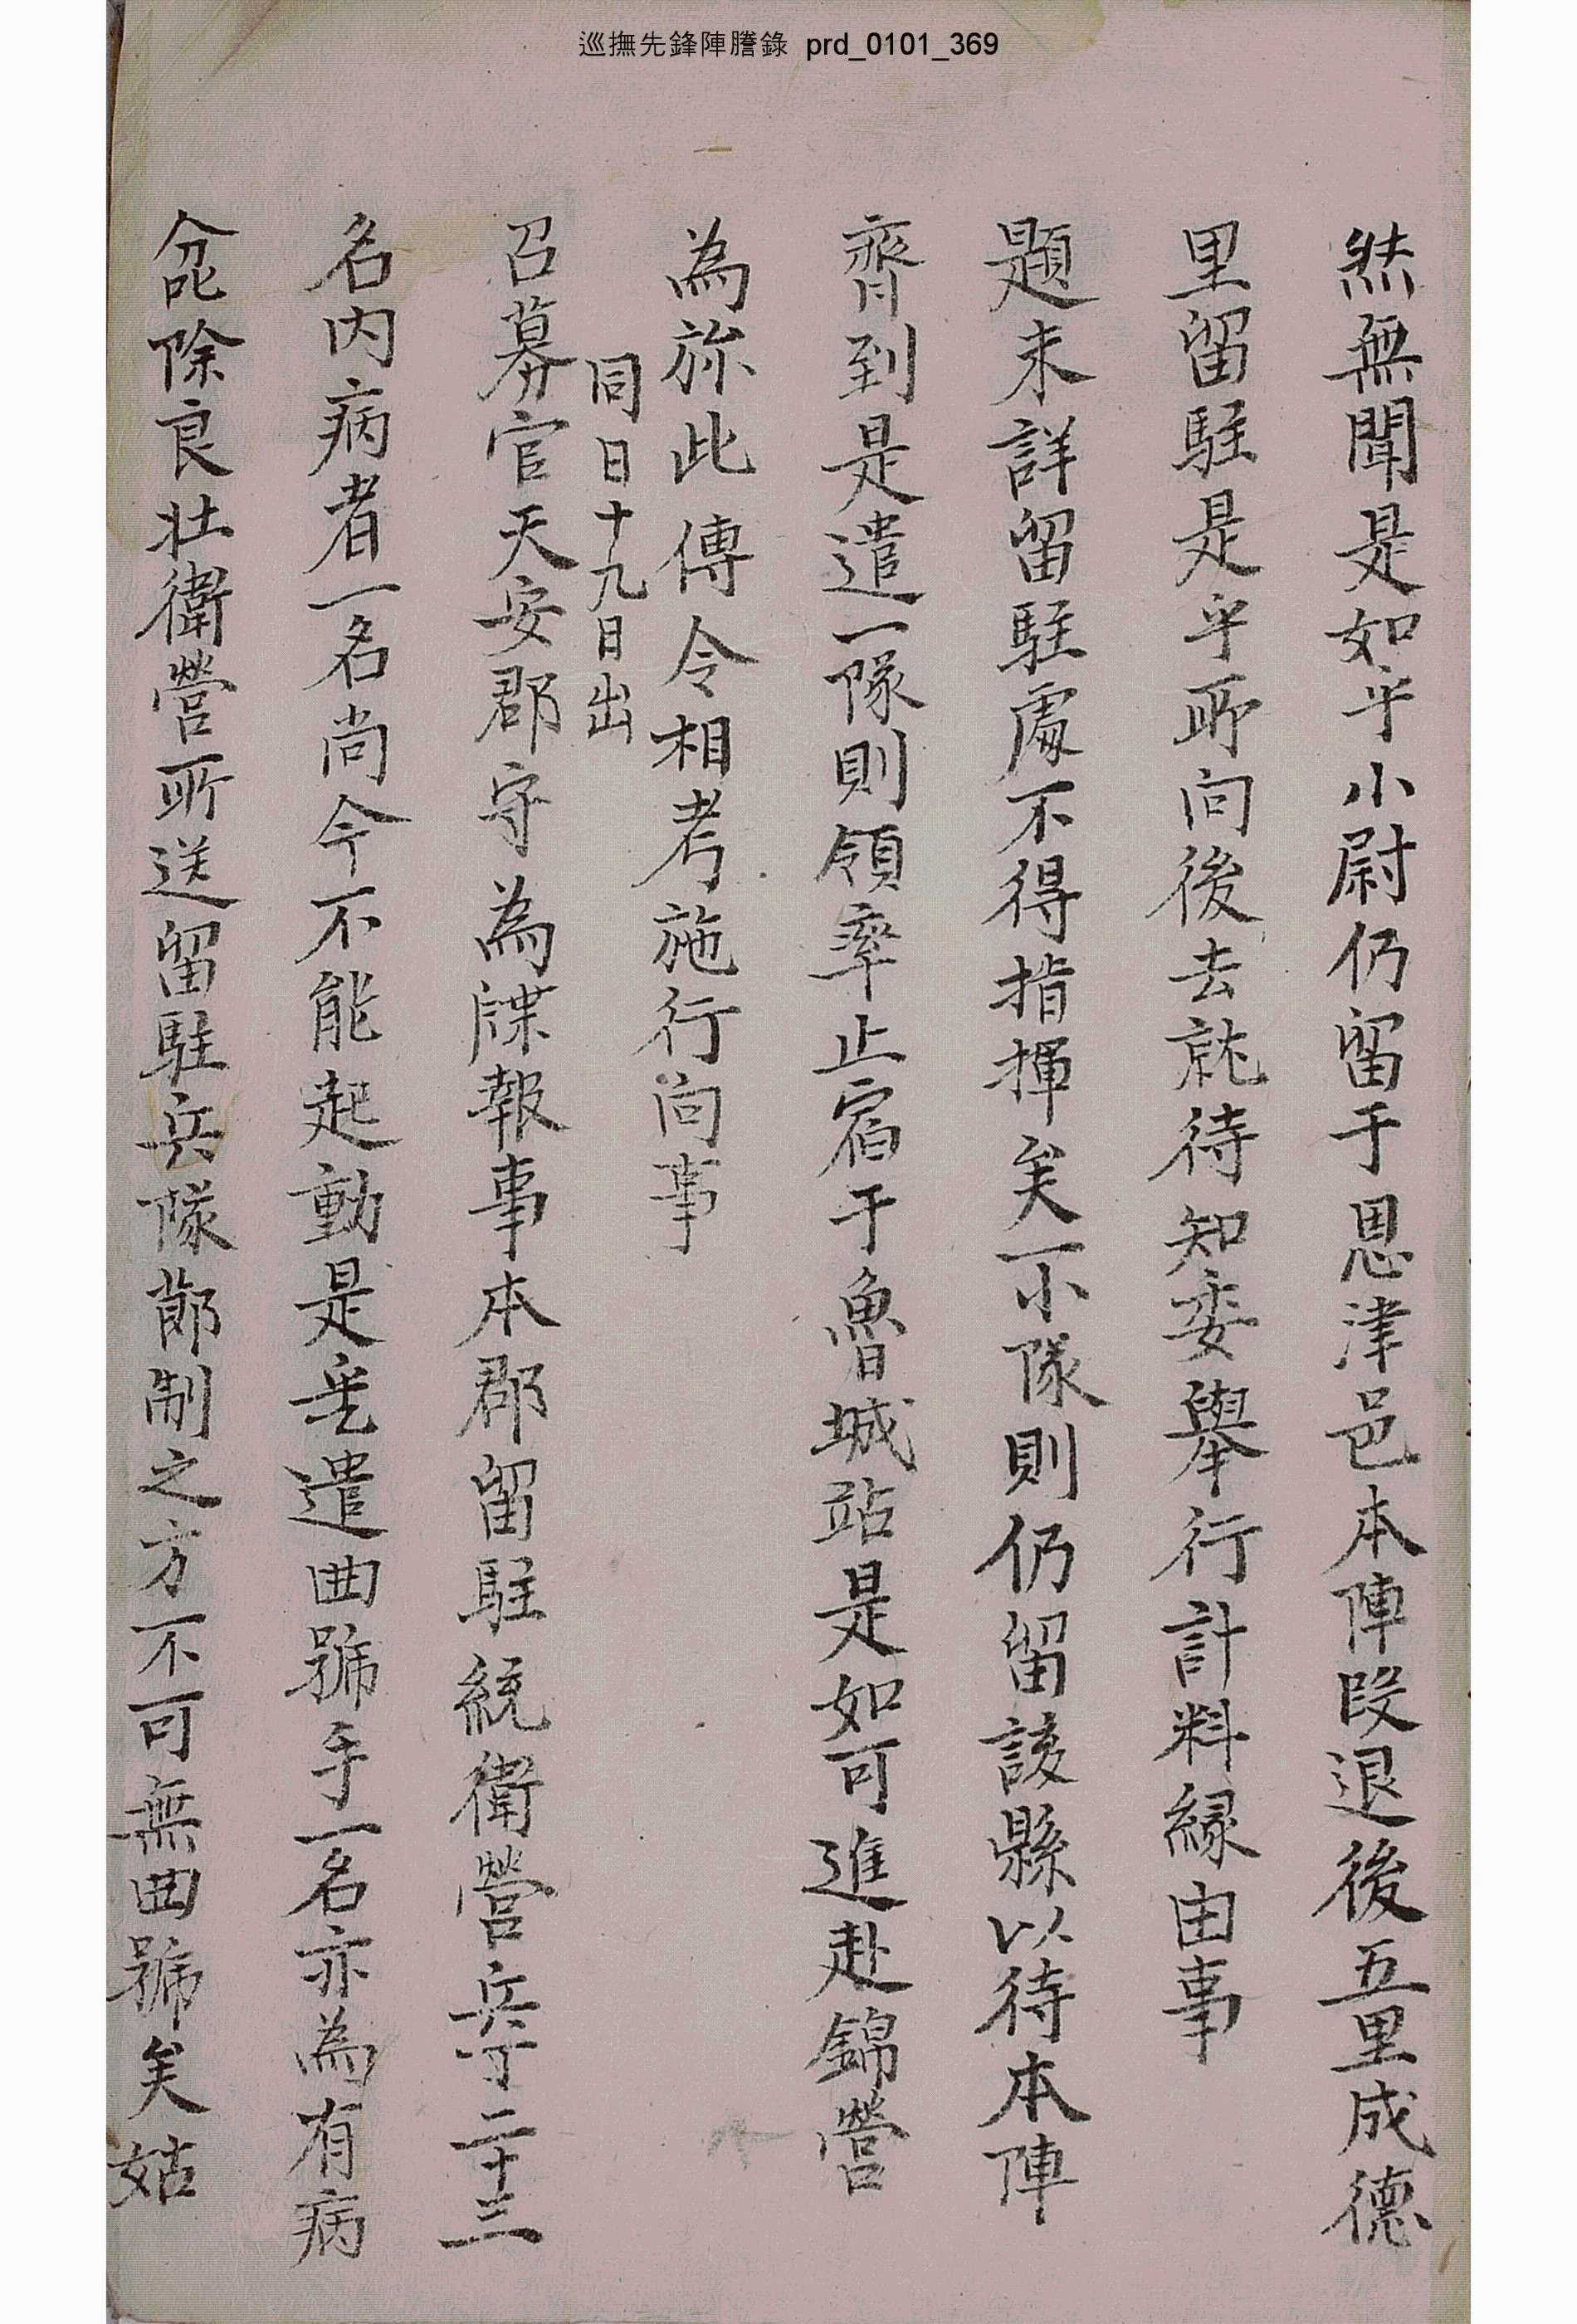 巡撫先鋒陣謄錄 prd_0101_369
然無聞是如乎小尉仍留于恩津邑本陣段退後五里成德
里留駐是乎所向後去就待知委擧行計料緣由事
題未詳留駐處不得指揮矣一小隊則仍留該縣以待本陣
齊到是遣一隊則領率止宿于魯城站是如可進赴錦營
為旀此傳令相考施行向事
同日十九日出
召募官天安郡守為牒報事本郡留駐統衛營兵丁二十三
名內病者一名尚今不能起動是乎遣曲號手一名亦為有病
除良壯衛營所送留駐兵隊節制之方不可無曲號矣姑